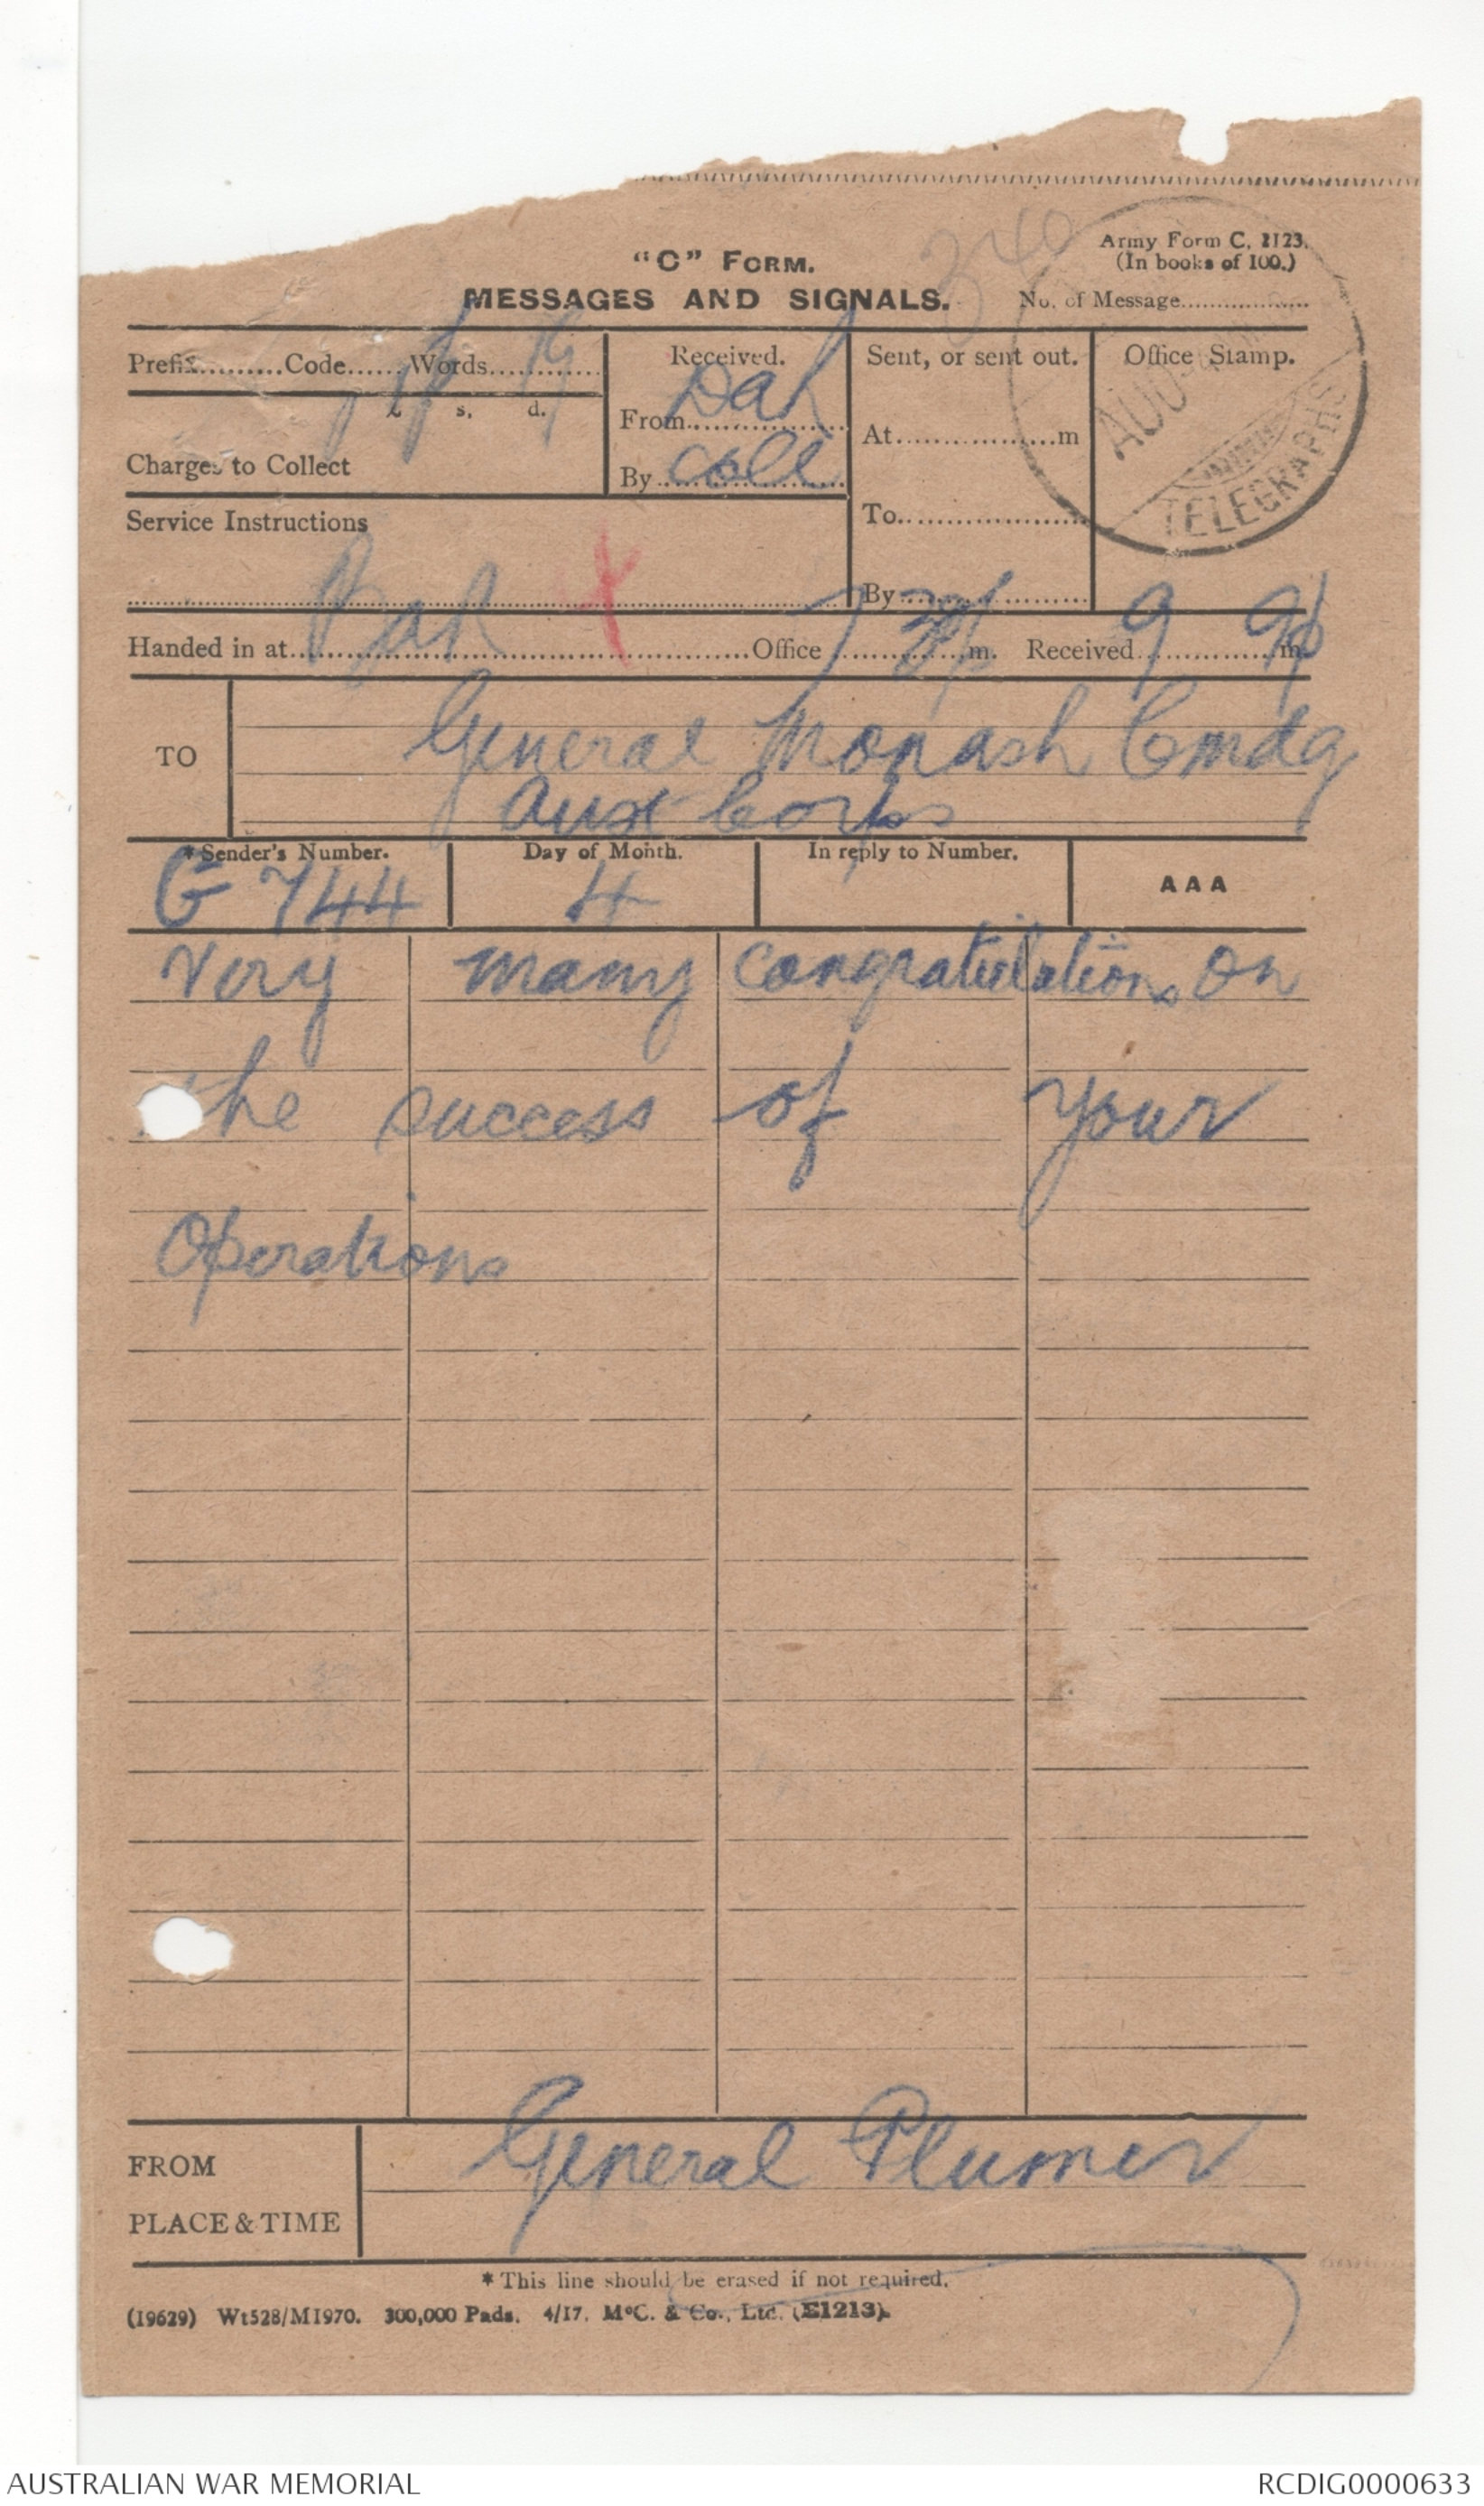 340
Army Form C. 2123.
(In books of 100.)
"C" FORM.
MESSAGES AND SIGNALS.
No. of Message
Prefix Code Words 19
£ s. d.
Charges to Collect
Received.
From Dah
By Coll
Sent, or sent out.
At m
To
By
Office Stamp.
TELEGRAPHS
Service Instructions
Handed in at Dah Office 7 30 p m. Received 9 9p m.
TO
General Monash Cmdg
Aust Corps
*Sender's Number.
Day of Month.
In reply to Number.
AAA
G 744
4
Very many congratulations on
he success of your
Operations
FROM
PLACE & TIME
General Plumer
* This line should be erased if not required.
(19629) Wt528/M1970. 300,000 Pads. 4/17. McC. & Co., Ltd. (E1213).
AUSTRALIAN WAR MEMORIAL
RCDIG0000633